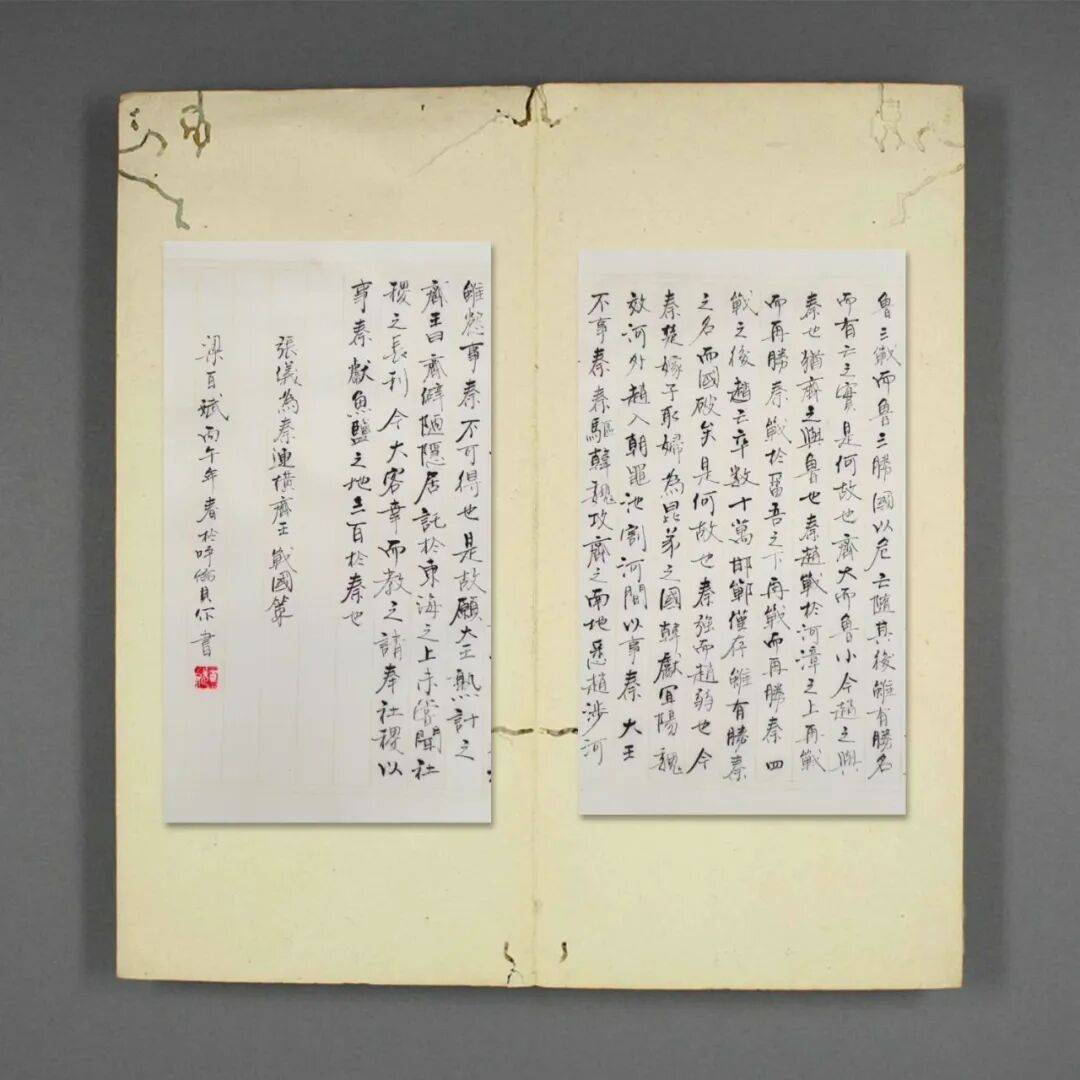 魯三戰而魯三勝國以危亡隨其後雖有勝名
而有亡之實是何故也齊大而魯小今趙之與
秦也猶齊之與魯也秦趙戰於河漳之上再戰
而再勝秦戰於番吾之下再戰而再勝秦四
戰之後趙亡卒数十萬邯鄲僅存雖有勝秦
之名而國破矣是何故也秦強而趙弱也今
秦楚嫁子取婦為昆弟之國韓獻宜陽魏
效河外趙入朝黽池割河間以事秦大王
不事秦秦驅韓魏攻齊之南地悉趙涉河
雖慾事秦不可得也是故願大王熟計之
齊王曰齊僻陋隱居託於東海之上未嘗聞社
稷之長利今大客幸而教之請奉社稷以
事秦獻魚鹽之地三百於秦也
張儀為秦連横齊王 戰國策
梁百斌丙午年春於呼倫貝尔書